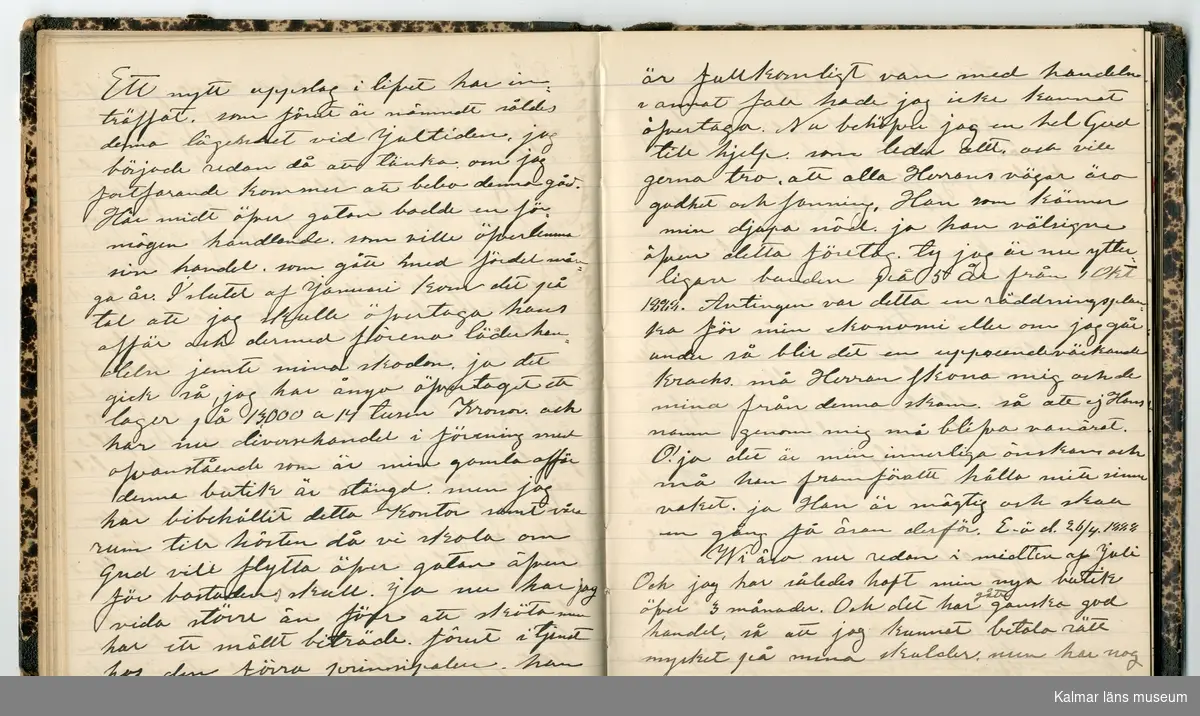 Ett nytt uppslag i lifvet har in-
träffat. som förut är nämndt såldes
denna lägenhet vid Jultiden, jag
började redan då att tänka om jag
fortfarande kommer att bebo denna gård.
Här midt öfver gatan bodde en för-
mögen handlande. som ville öfverlemna
sin handel. som gått med fördel mån-
ga år. I slutet af Januari kom det på
tal att jag skulle öfvertaga hans
affär och dermed förena läderhan-
deln jemte mina skodon. ja det
gick så, jag har ånyo öfvertaget ett
lager på 13,000 a 14 tusen Kronor. och
har nu diversehandel i förening med
ofvanstående som är min gamla affär
denna butik är stängd. men jag
har bibehållit detta Kontor samt våra
rum till hösten då vi skola om
Gud vill flytta öfver gatan äfven
för bostadens skull. Ja nu har jag
vida större än förr att sköta men
har ett mällt biträde. förut i tjenst
hos den förra prinsipalen. han
är fullkomligt van med handeln
i annat fall hade jag icke kunnat
öfvertaga. Nu behöfver jag en hel Gud
till hjelp. som leder allt, och vill
gerna tro, att alla Herrans vägar äro
godhet och sanning, Han som känner
min djupa nöd. ja han välsigne
äfven detta företag. ty jag är nu ytter-
ligare bunden på 5 År från 1 Okt
1888. Antingen var detta en räddningsplan-
ka för min ekonomi eller om jag går
under så blir det en uppseendeväckande
krachs. må Herran skona mig och de
mina från denna skam. så att ej Hans
namn genom mig må blifva vanärat.
O! ja det är min innerliga önskan och
må han framföratt hålla mitt sinne
vaket. ja Han är mägtig och skall
en gång få äran derför. E-å d. 26/4. 1888
Wi äro nu redan i midten af Juli
Och jag har således haft min nya butik
öfver 3 månader. Och det har gått ganska god
handel, så att jag kunnat betala rätt
mycket på mina skulder, men har nog
Kalmar läns museum